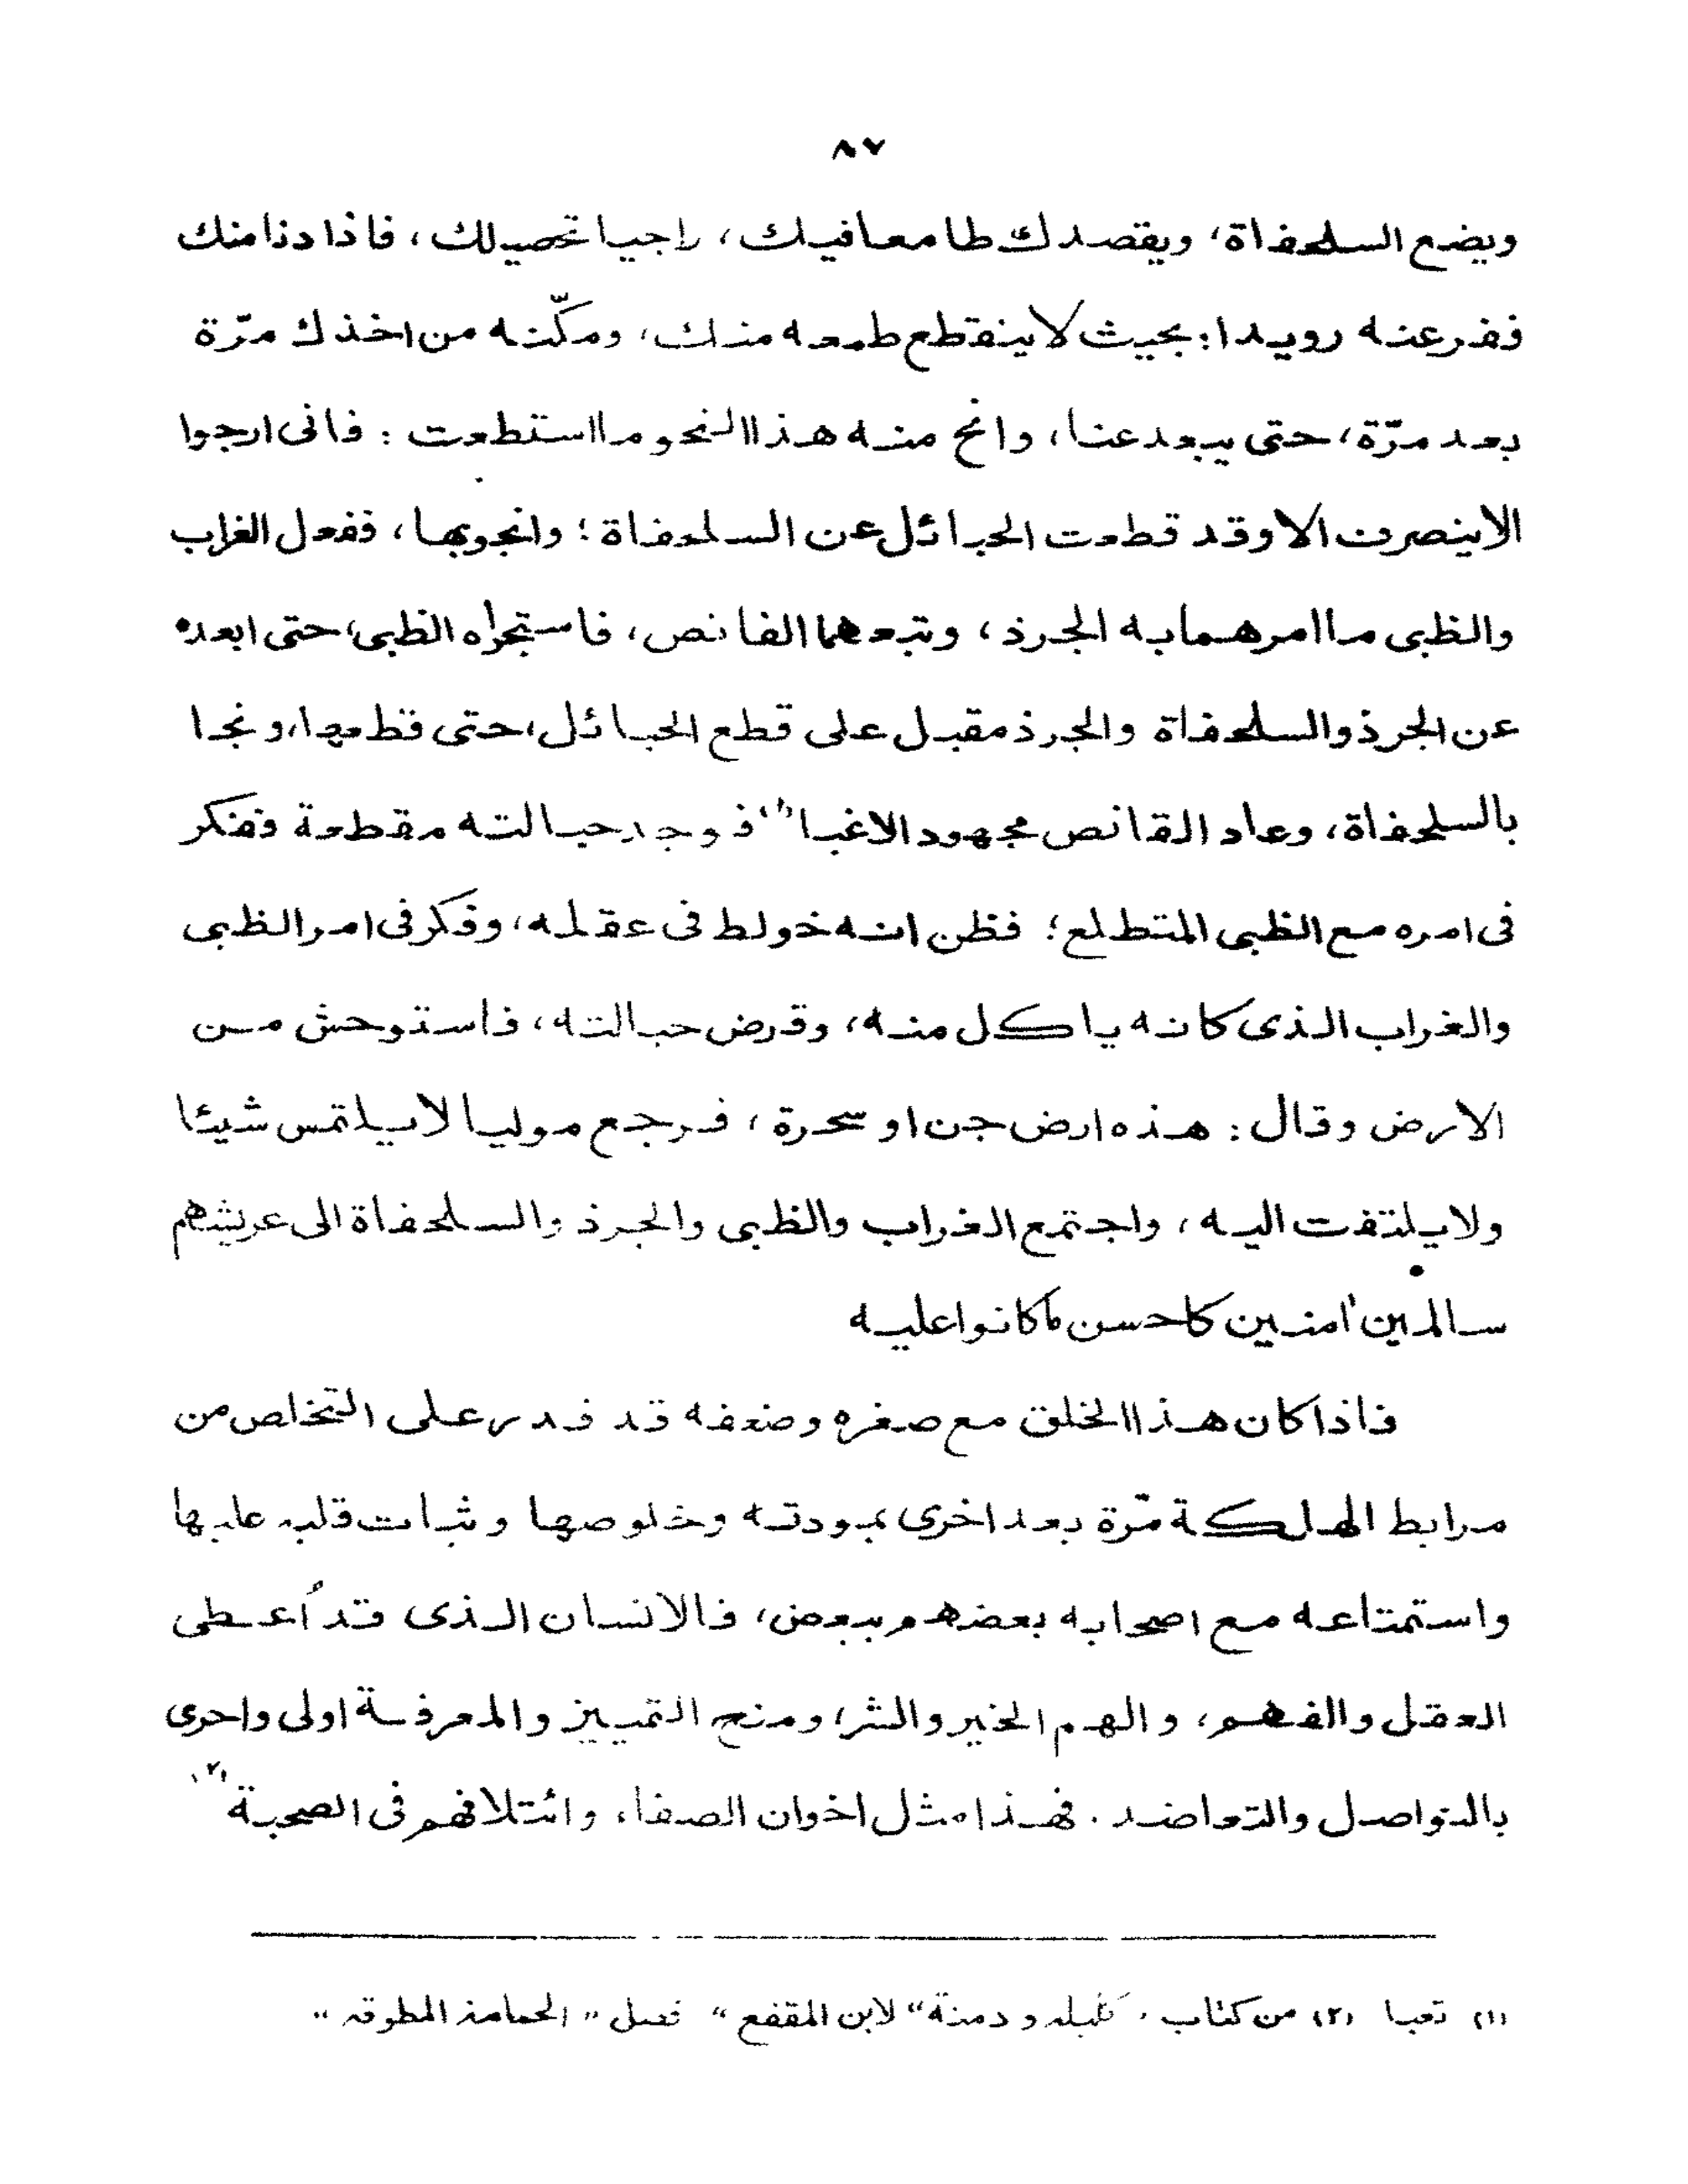 ٨٧
ويضع السلحفاة، ويقصدك طامعا فيك، راجيا تحصيلك، فاذا دنا منك
ففر عنه رويدا؛ بحيث لا ينقطع طمعه منك، ومكّنه من اخذك مرّة
بعد مرّة، حتى يبعد عنا، وانح منه هذا النحو ما استطعت : فانى ارجوا
الا ينصرف الا وقد قطعت الحبائل عن السلحفاة؛ وانجو بها، ففعل الغراب
والظبى ما امرهما به الجرذ، وتبعهما القانص، فاستجراه الظبى، حتى ابعده
عن الجرذ والسلحفاة والجرذ مقبل على قطع الحبائل، حتى قطعها، ونجا
بالسلحفاة، وعاد القانص مجهود الاغبا (١) فوجد حبالته مقطعة ففكر
فى امره مع الظبى المتطلع؛ فظن انه خولط فى عقله، وفكر فى امر الظبى
والغراب الذى كانه ياكل منه، وقرض حبالته، فاستوحش من
الارض وقال : هذه ارض جن او سحرة، فرجع موليا لا يلتمس شيئا
ولا يلتفت اليه، واجتمع الغراب والظبى والجرذ والسلحفاة الى عريشهم
سالمين اٰمنين كاحسن ما كانوا عليه
فاذا كان هذا الخلق مع صغره وضعفه قد قدر على التخلص من
مرابط الهلكة مرّة بعد اخرى بمودته وخلوصها وثبات قلبه عليها
واستمتاعه مع اصحابه بعضهم ببعض، فالانسان الذى قد اُعطى
العقل والفهم، والهم الخير والشر، ومنح التمييز والمعرفة اولى واحرى
بالتواصل والتعاضد . فهذا مثل اخوان الصفا، وائتلافهم فى الصحبة (٢)
(١) تعبا (٢) من كتاب " كليله و دمنة" لابن المقفع " فصل " الحمامة المطوقه "